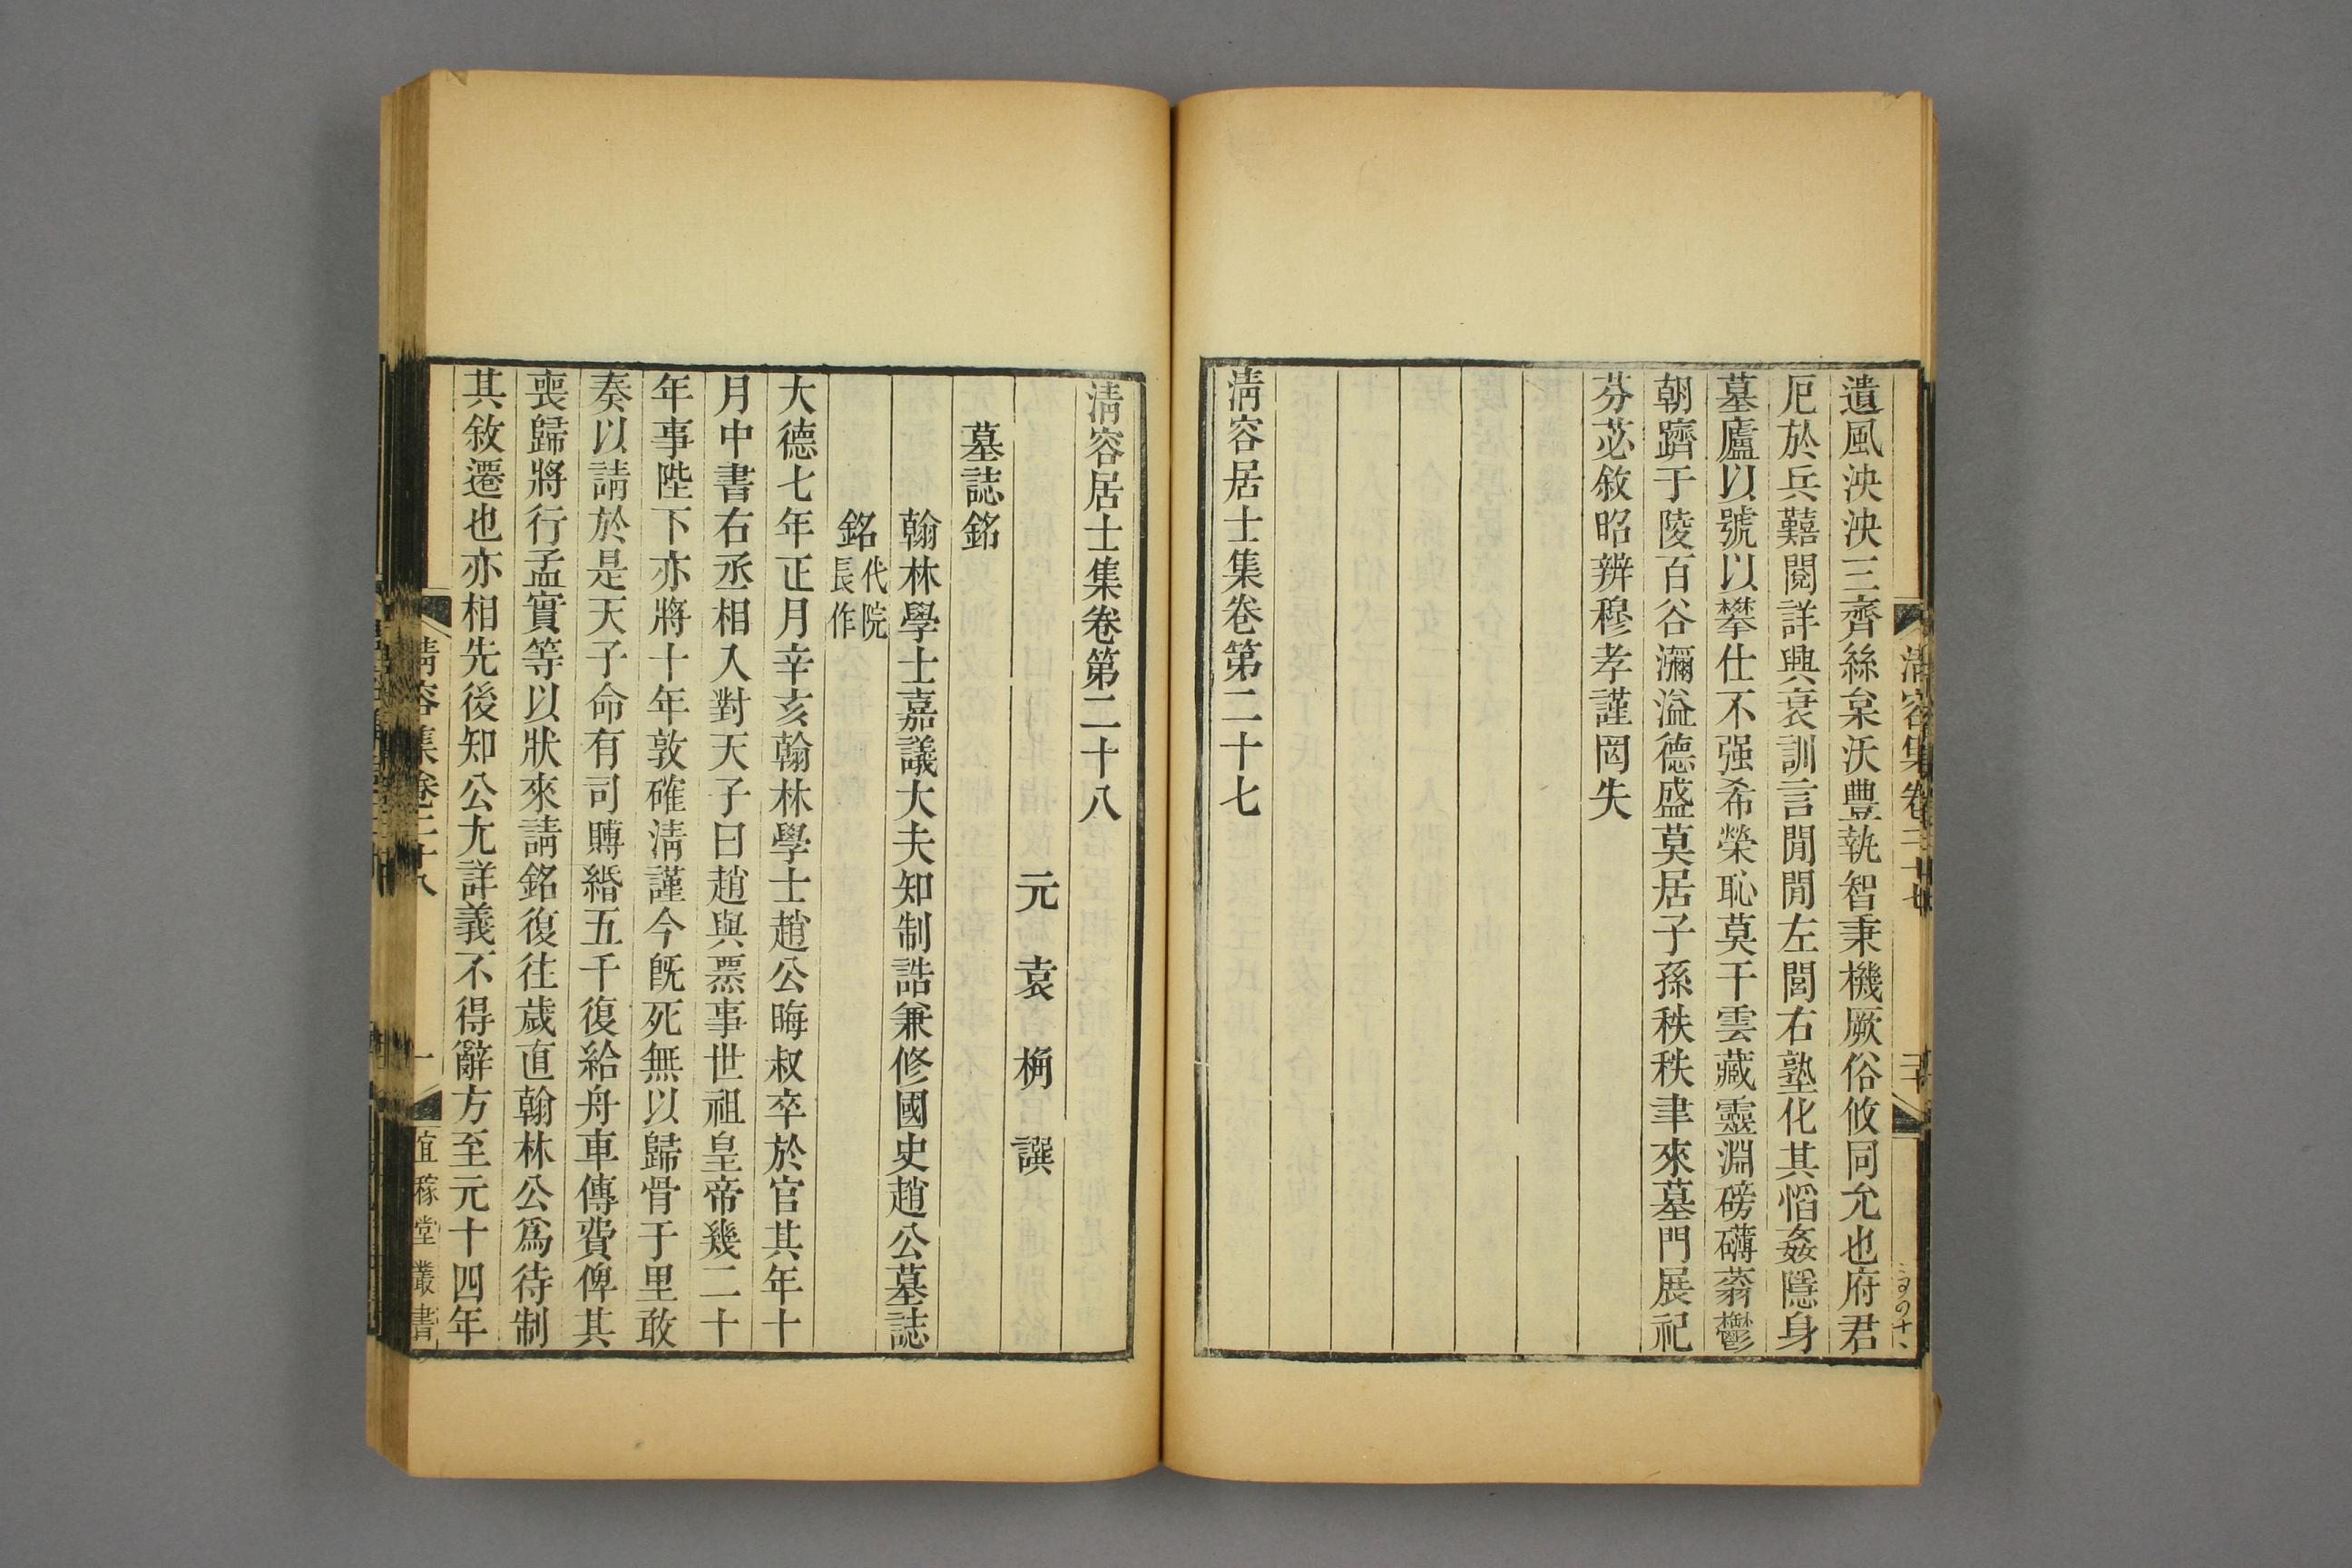 遺風泱泱三齊絲枲沃豐執智秉機厥俗攸同允也府君
厄於兵囏閱詳興衰訓言閒閒左閭右塾化其慆姦隱身
墓廬以號以攀仕不强希榮恥莫干雲藏靈淵磅礴蓊鬱
朝躋于陵百谷瀰溢德盛莫居子孫秩秩聿來墓門展祀
芬苾敘昭辨穆孝謹罔失
淸容居士集卷第二十七
淸容居士集卷第二十八
元袁桷譔
墓誌銘
翰林學士嘉議大夫知制誥兼修國史趙公墓誌
銘代院長作
大德七年正月辛亥翰林學士趙公晦叔卒於官其年十
月中書右丞相入對天子曰趙與𤐫事世祖皇帝幾二十
年事陛下亦將十年敦確淸謹今旣死無以歸骨于里敢
奏以請於是天子命有司賻緡五千復給舟車傳費俾其
喪歸將行孟實等以狀來請銘復往歲直翰林公爲待制
其敘遷也亦相先後知公尤詳義不得辭方至元十四年
淸容集卷二十八
一
宜稼堂叢書